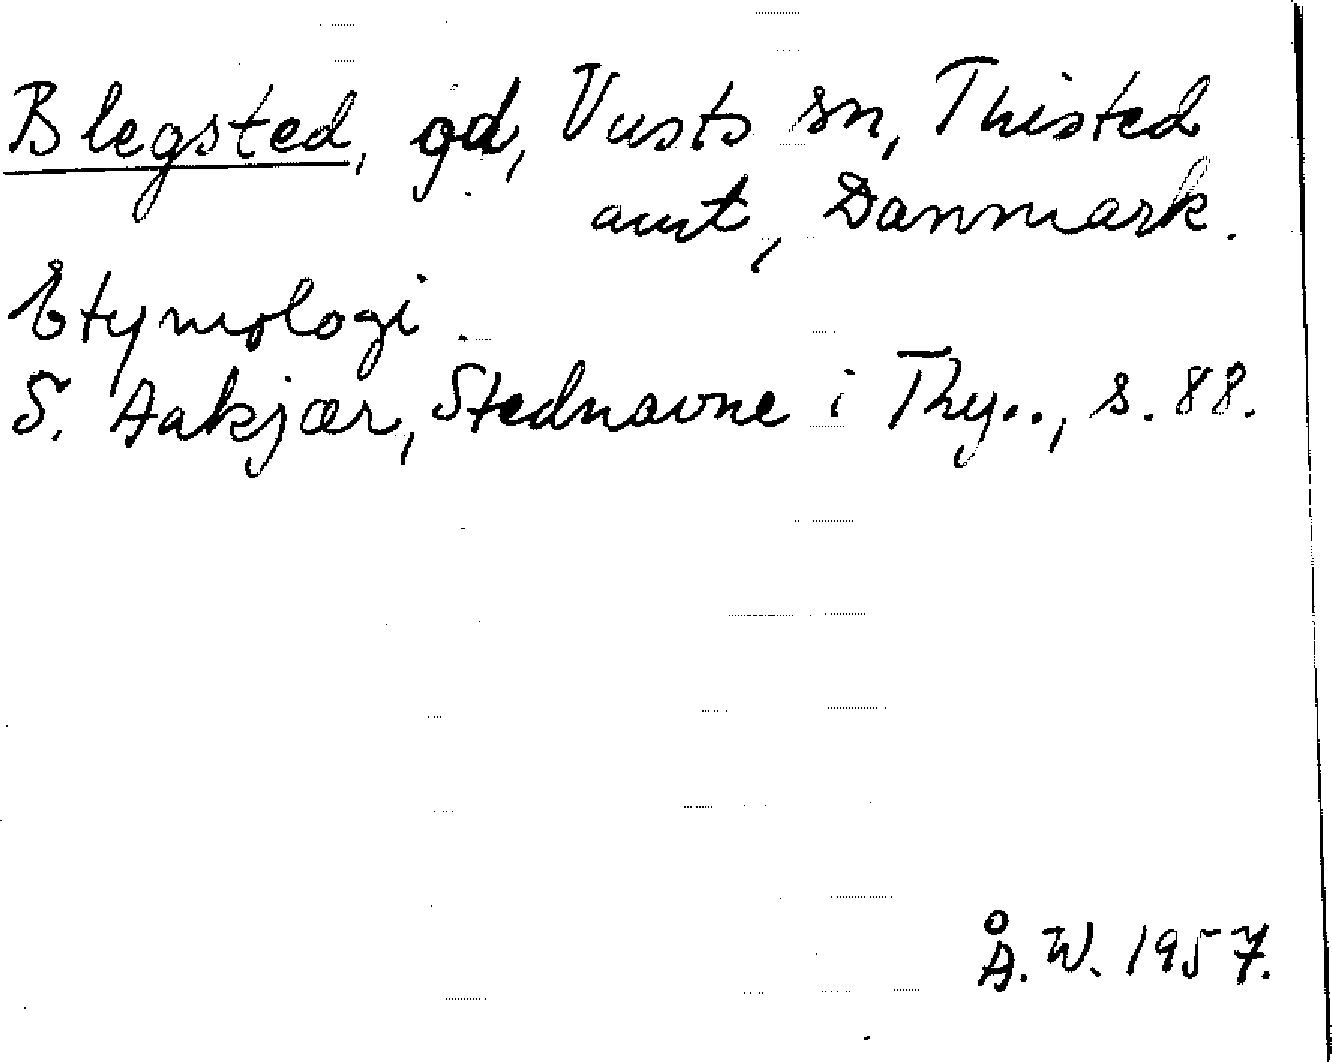 Blegsted, gd, Vusts sn, Thisted
amt, Danmark.
Etymologi.
S. Aakjær, Stednavne i Thy.., s. 88.
Å. W. 1957.